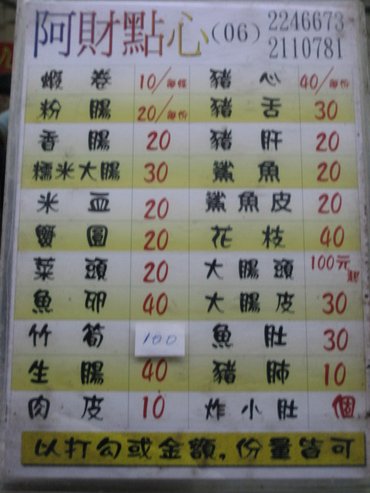 阿財點心(06) 2246673
2110781
蝦卷 10/每條 豬心 40/每份
粉腸 20/每份 豬舌 30
香腸 20 豬肝 20
糯米大腸 30 鯊魚 20
米血 20 鯊魚皮 20
蟹圓 20 花枝 40
菜頭 20 大腸頭 100元起
魚卵 40 大腸皮 30
竹筍 100 魚肚 30
生腸 40 豬肺 10
肉皮 10 炸小肚 個
以打勾或金額,份量皆可